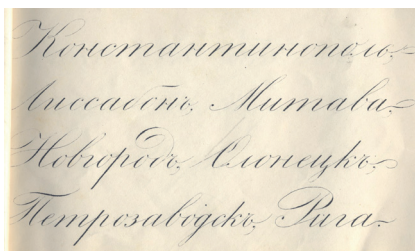 Константинополь,
Лиссабонъ, Митава
Новгородъ, Олонецкъ,
Петрозаводскъ, Рига